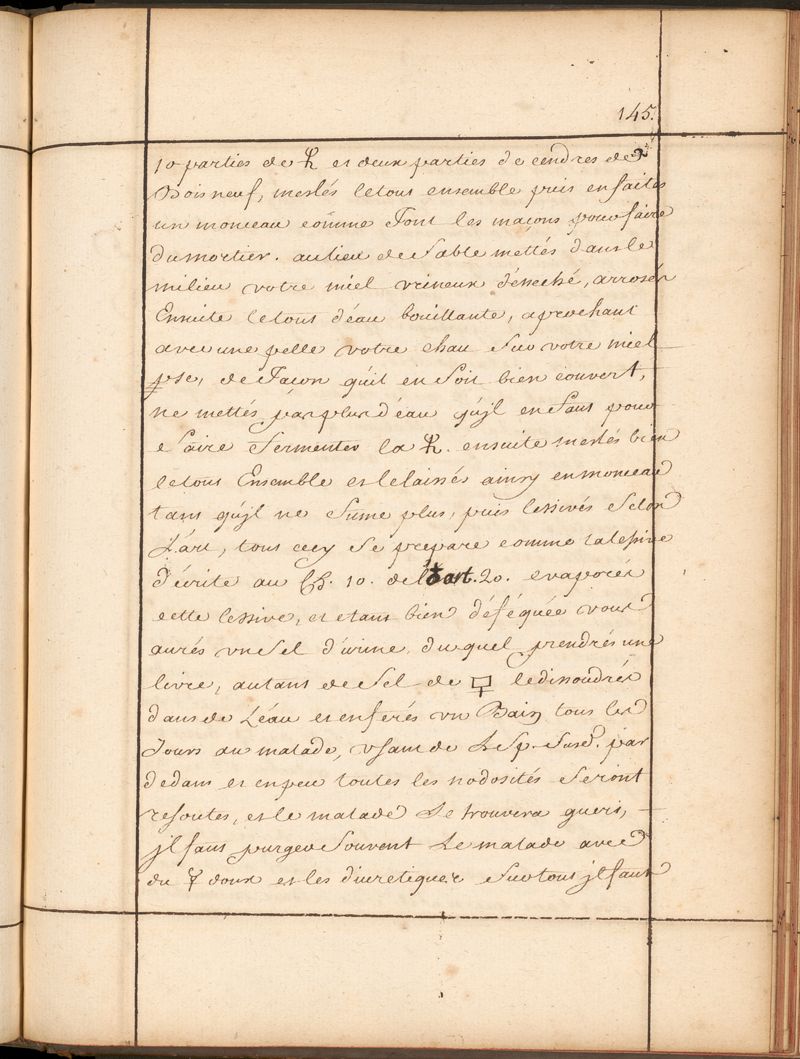 145.
10 parties de ♄ et deux parties de cendres de
Bois neuf, meslés letout ensemble puis en faites
un monceau com̄e font les maçons pour faire
du mortier. au lieu de sable mettés dans le
milieu votre miel vrineux désseché, arrosés
Ensuite letout d'éau bouillante, aprochant
avec une pelle votre chau sur votre miel
pse, de façon qúil en soit bien couvert,
ne mettés pas plus d'éau qújl en faut pour
faire fermenter la ♄. ensuite meslés bien
letout Ensemble et le laissés ainsy en monceau
tant qújl ne fume plus, puis lessivés selon
L'árt, tout cecy se prepare comme la lessive
d'écrite au Ch. 10. de l'art. 20. evaporés
cette lessive, et etant bien déféquée vous
aurés vn sel d'úrine duquel prendrés une
livre, autant de sel de 🜿 le dissoudrés
dans de L'éau et en ferés vn Bain tous les
Jours au malade, vsant de L'esp. susd. par
dedans et en peu toutes les nodosités seront
resoutes, et le malade se trouvera gueri,
jl faut purger souvent Le malade avec
du ☿ doux et les diuretiques surtout jl faut